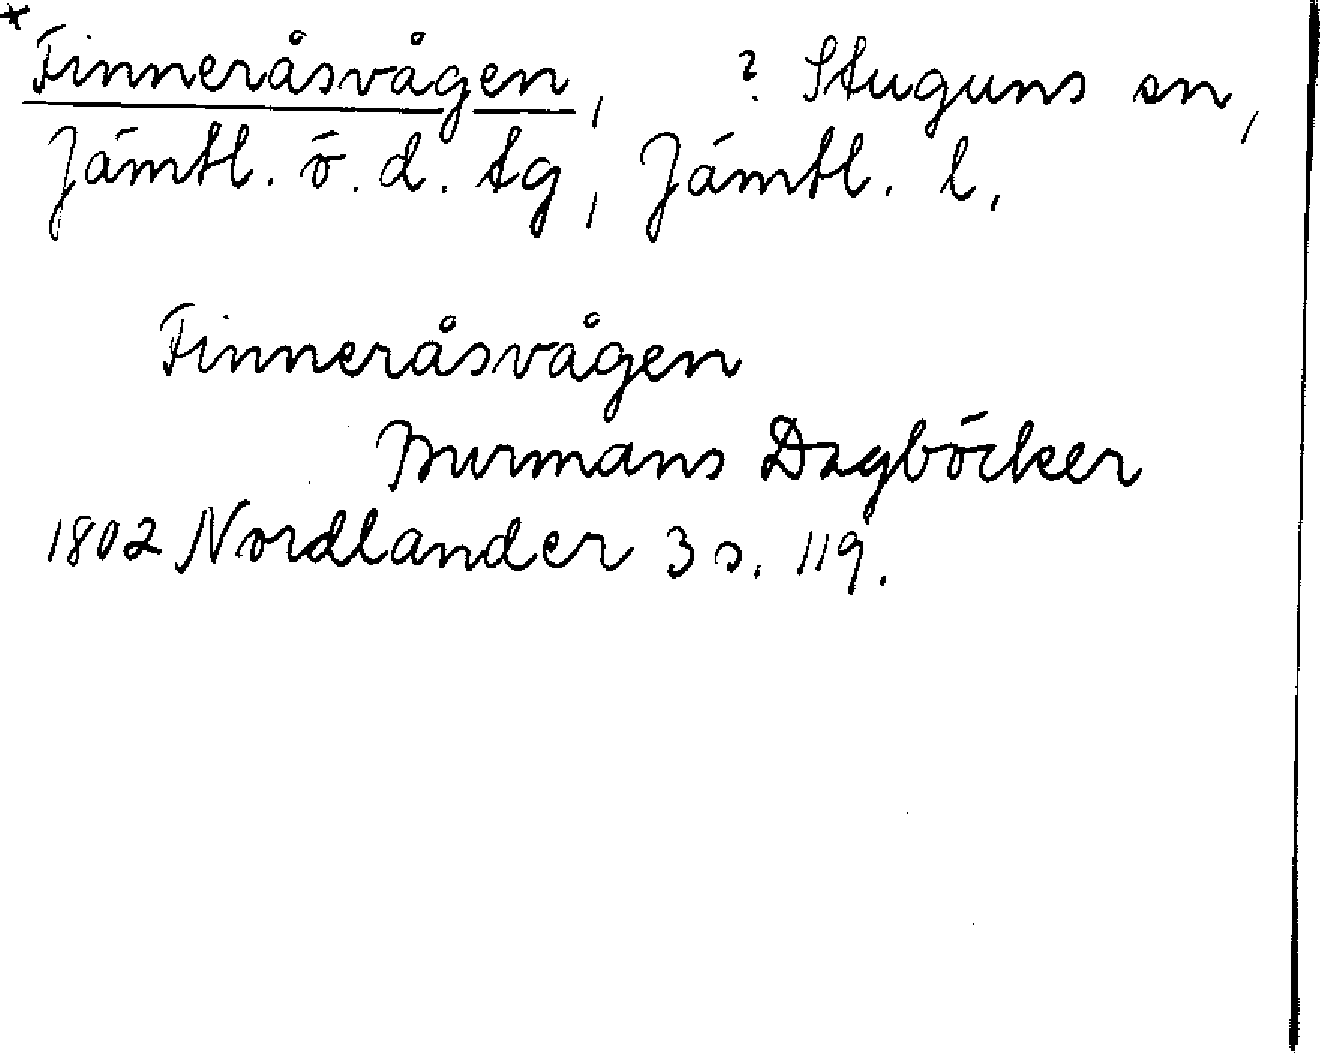 * Finneråsvågen, ? Stuguns sn,
Jämtl. ö. d. tg, Jämtl. l.
Finneråsvågen
Burmans Dagböcker
1802 Nordlander 3 s. 119.